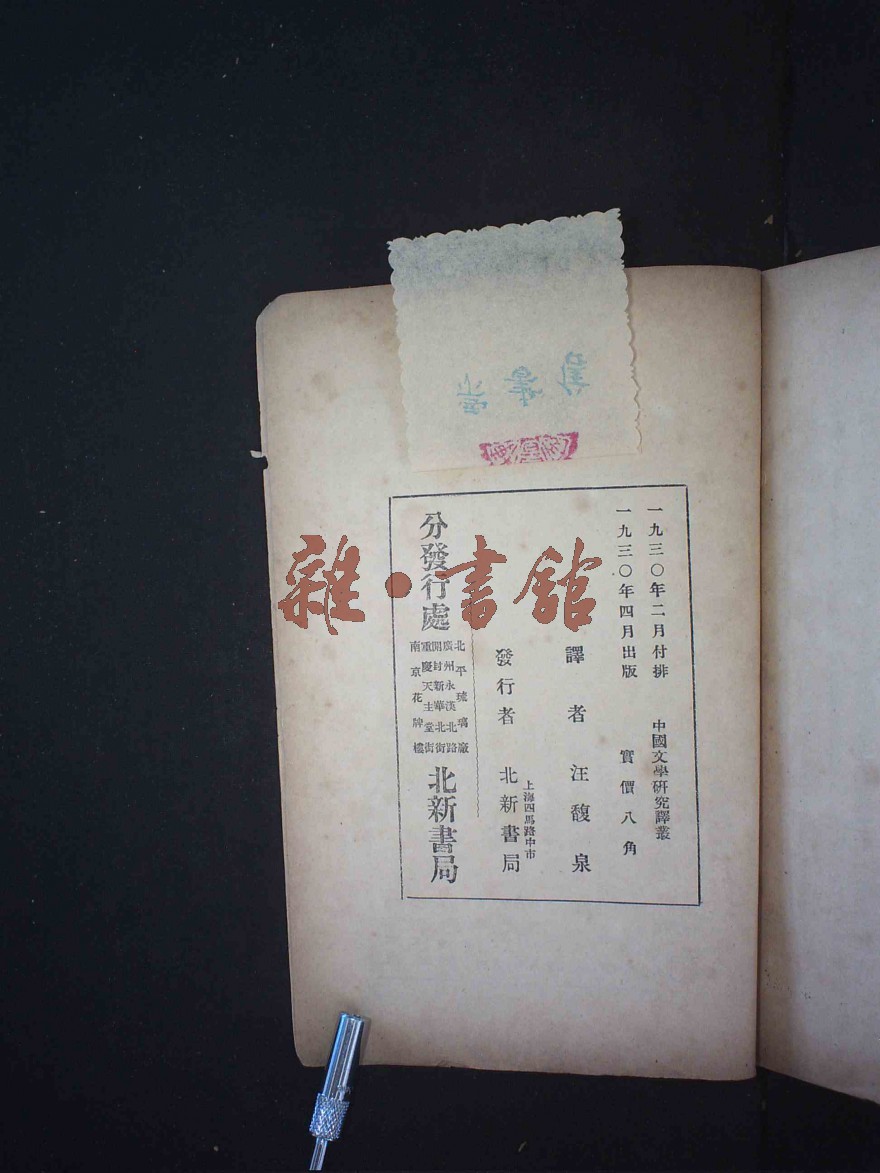 一九三〇年二月付排
中國文學研究譯叢
一九三〇年四月出版
實價八角
譯者 汪馥泉
發行者
上海四馬路中市
北新書局
分發行處
北平琉璃廠
廣州永漢北路
開封新華北街
重慶天主堂街
南京花牌樓
北新書局
雜·書館